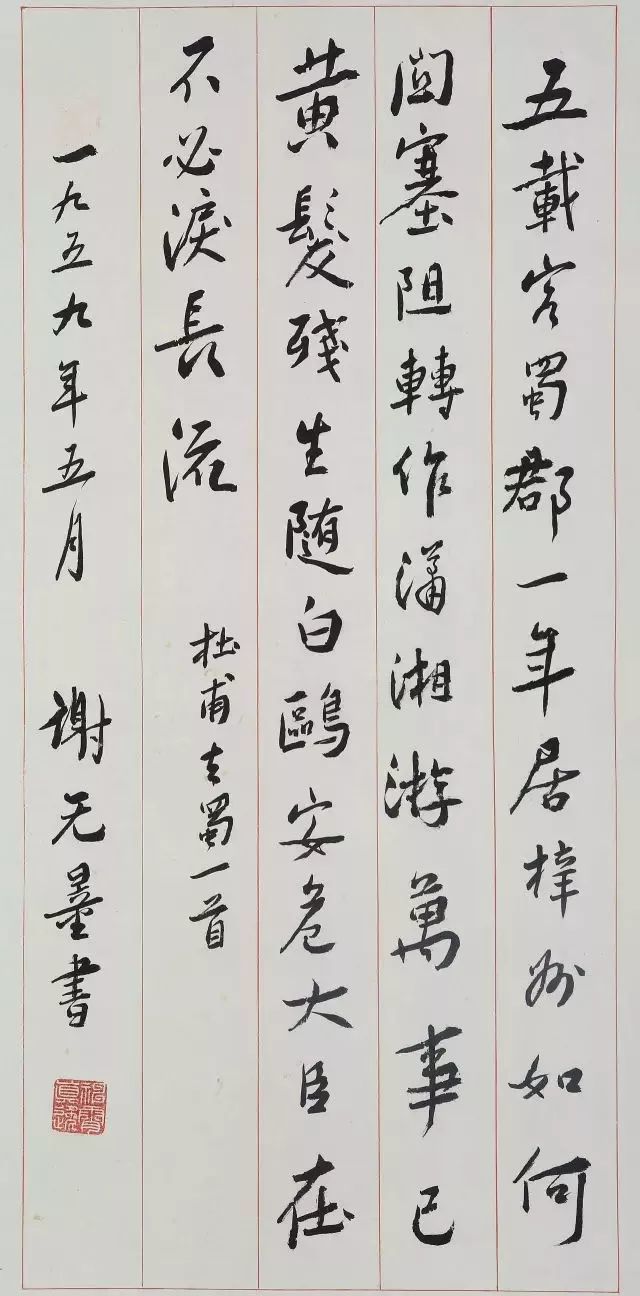 五載客蜀郡一年居梓州如何
關塞阻轉作瀟湘游萬事已
黃髮殘生随白鷗安危大臣在
不必淚長流 杜甫去蜀一首
一九五九年五月 謝无量書